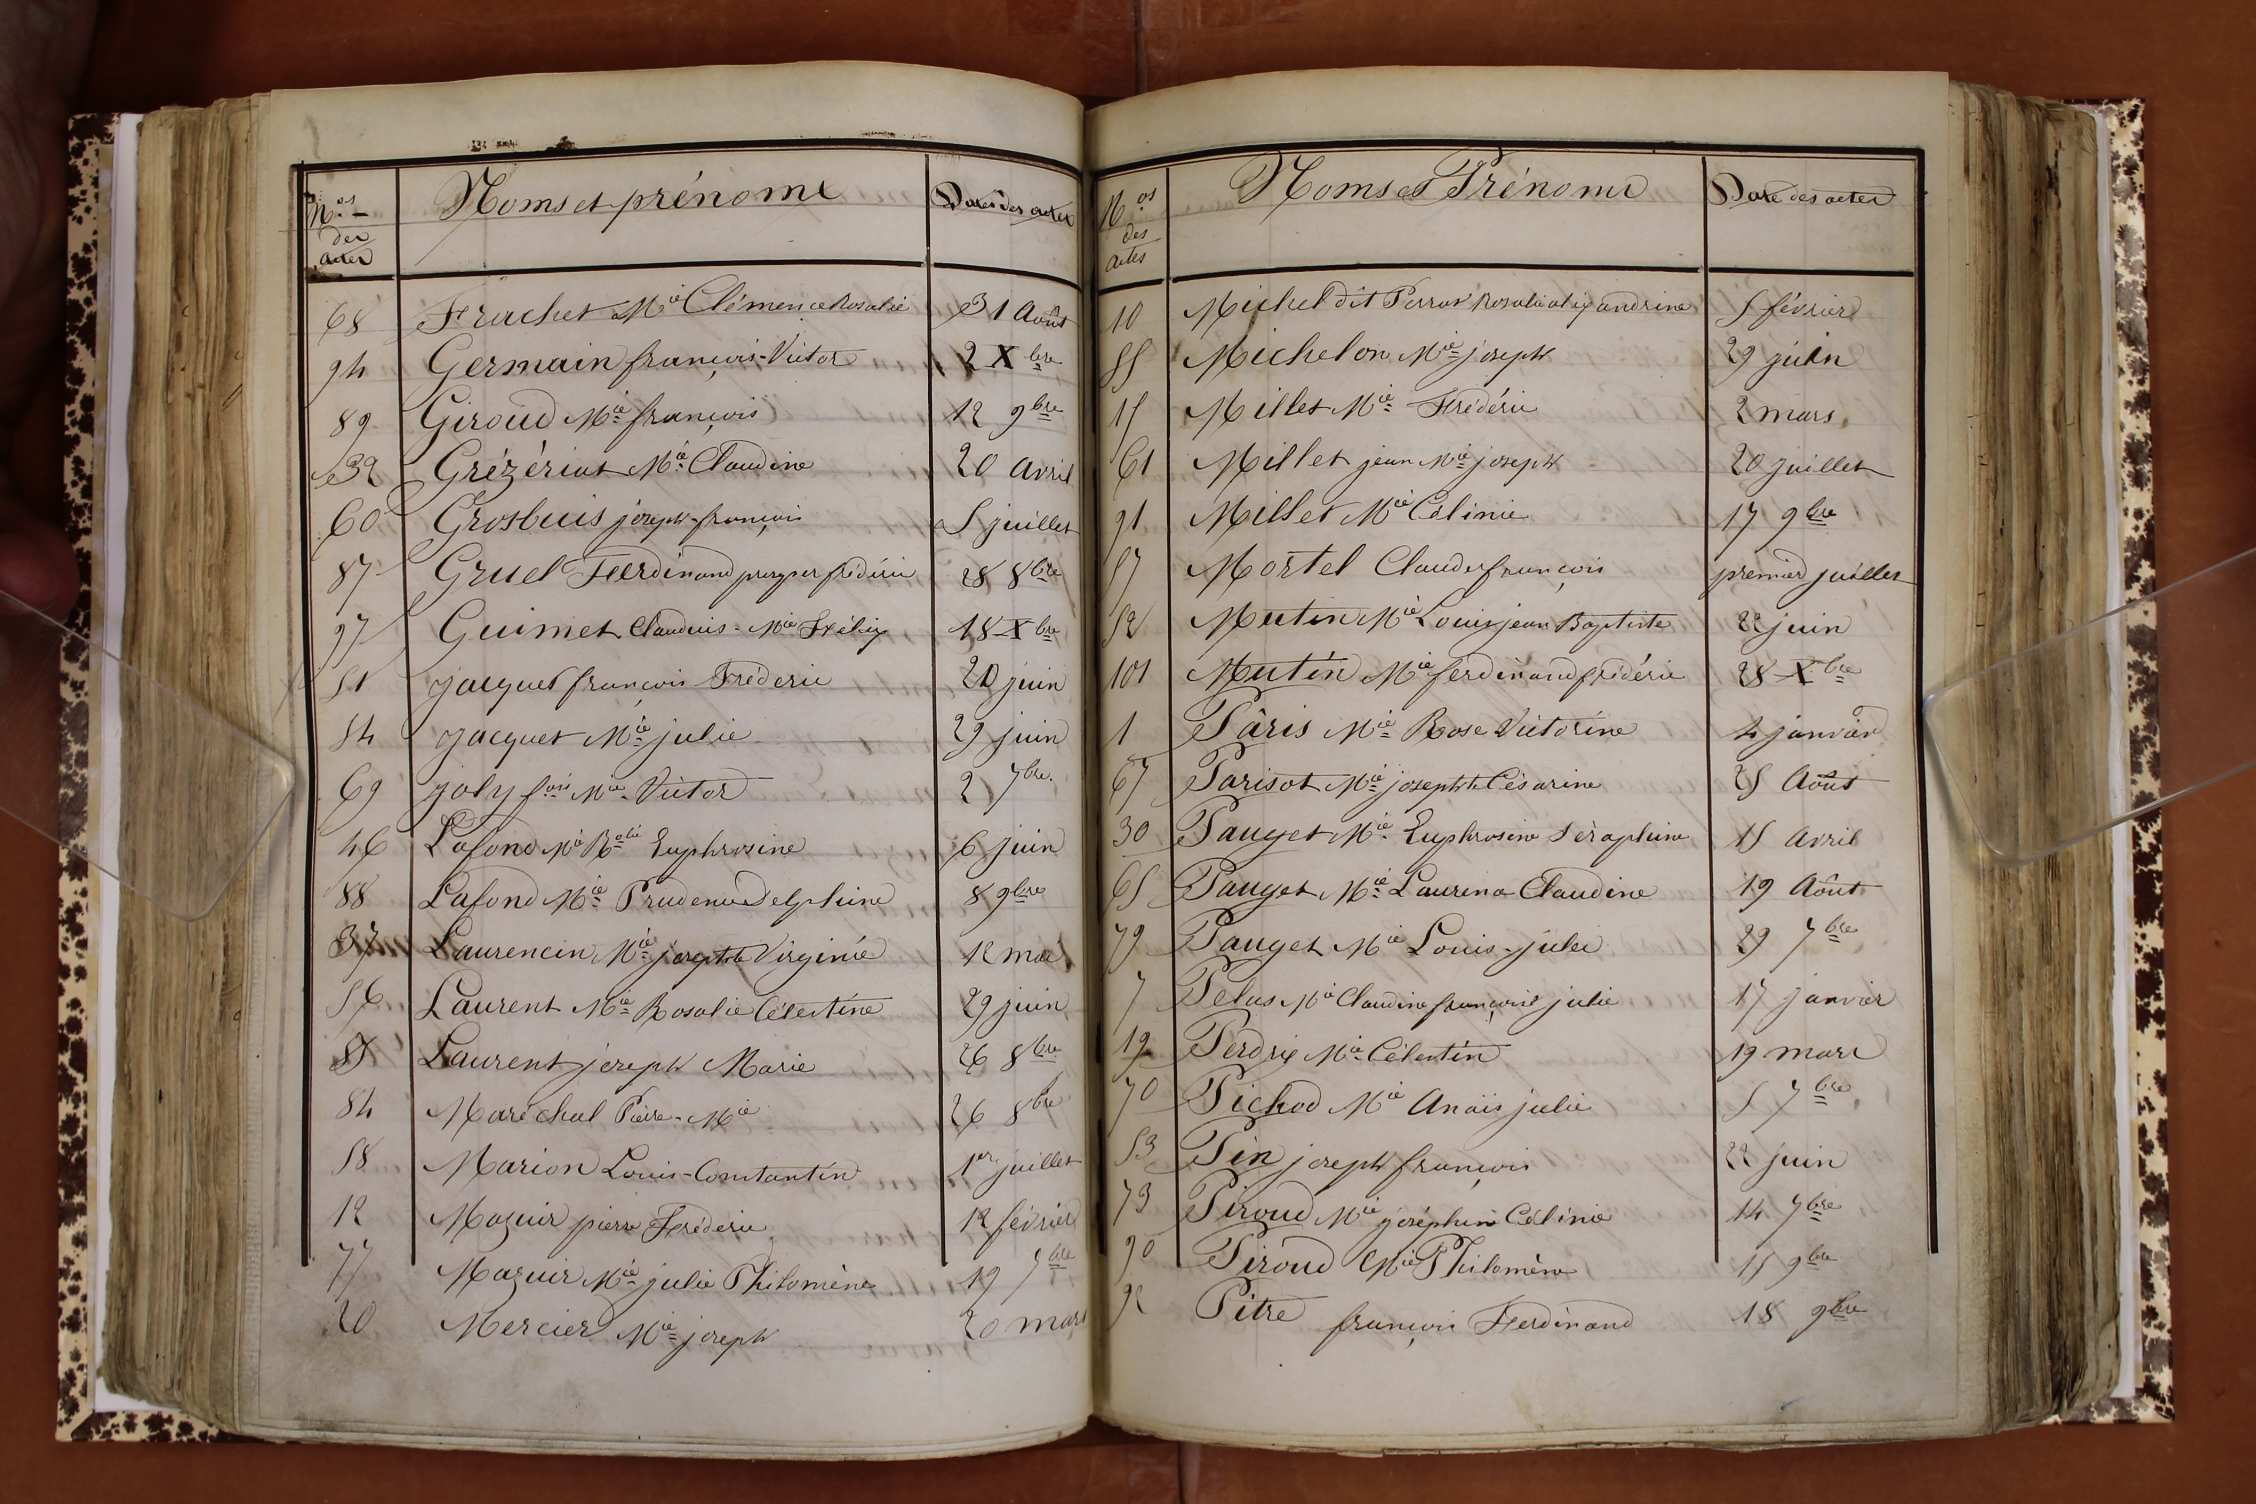 Nos des actes Noms et prénoms Dates des actes
68 Fruchet Mie Clémence Rosalie 31 Août
94 Germain françois-Victor 2 Xbre
89 Giroud Mie françois 12 9bre
32 Grézériat Mie Claudine 20 avril
60 Grosbuis joseph-françois 5 juillet
87 Gruel Ferdinand prosper frédéric 28 8bre
97 Guimet Claudius-Mie Félix 18 Xbre
51 jacquet françois Fréderic 20 juin
54 jacquet Mie julie 29 juin
69 joly fois Mie Victor 2 7bre
46 Lafond Mie Ralie Euphrosine 6 juin
88 Lafond Mie Prudence Delphine 8 9bre
37 Laurencin Mie josephte Virginie 12 mai
56 Laurent Mie Rosalie Célestine 29 juin
85 Laurent joseph Marie 26 8bre
84 Maréchal Pierre-Mie 26 8bre
58 Marion Louis-Constantin 1er juillet
12 Mazuir pierre Fréderic 12 février
77 Mazuir Mie julie Philomène 19 7bre
20 Mercier Mie joseph 20 mars
Nos des actes Noms et Prénoms Date des actes
10 Michel dit Perrat Rosalie alexandrine 5 février
55 Michelon Mie joseph 29 juin
15 Millet Mie Frédéric 2 mars
61 Millet jean Mie joseph 20 juillet
91 Millet Mie Célinie 17 9bre
57 Mortel Claude françois premier juillet
52 Mutin Mie Louis jean Baptiste 22 juin
101 Mutin Mie ferdinand frédéric 28 Xbre
1 Pâris Mie Rose Victorine 4 janvier
67 Parisot Mie josephte Césarine 25 Août
30 Pauget Mie Euphrosine Séraphine 15 avril
65 Pauget Mie Laurence Claudine 19 Août
79 Pauget Mie Louis-jules 29 7bre
7 Pelus Mie Claudine françoise julie 17 janvier
19 Perdrix Mie Célestin 19 mars
70 Pichod Mie Anaïs julie 5 7bre
53 Pin joseph françois 22 juin
73 Piroud Mie joséphine Célinie 14 7bre
90 Piroud Mie Philomène 15 9bre
92 Pitre françois Ferdinand 18 9bre